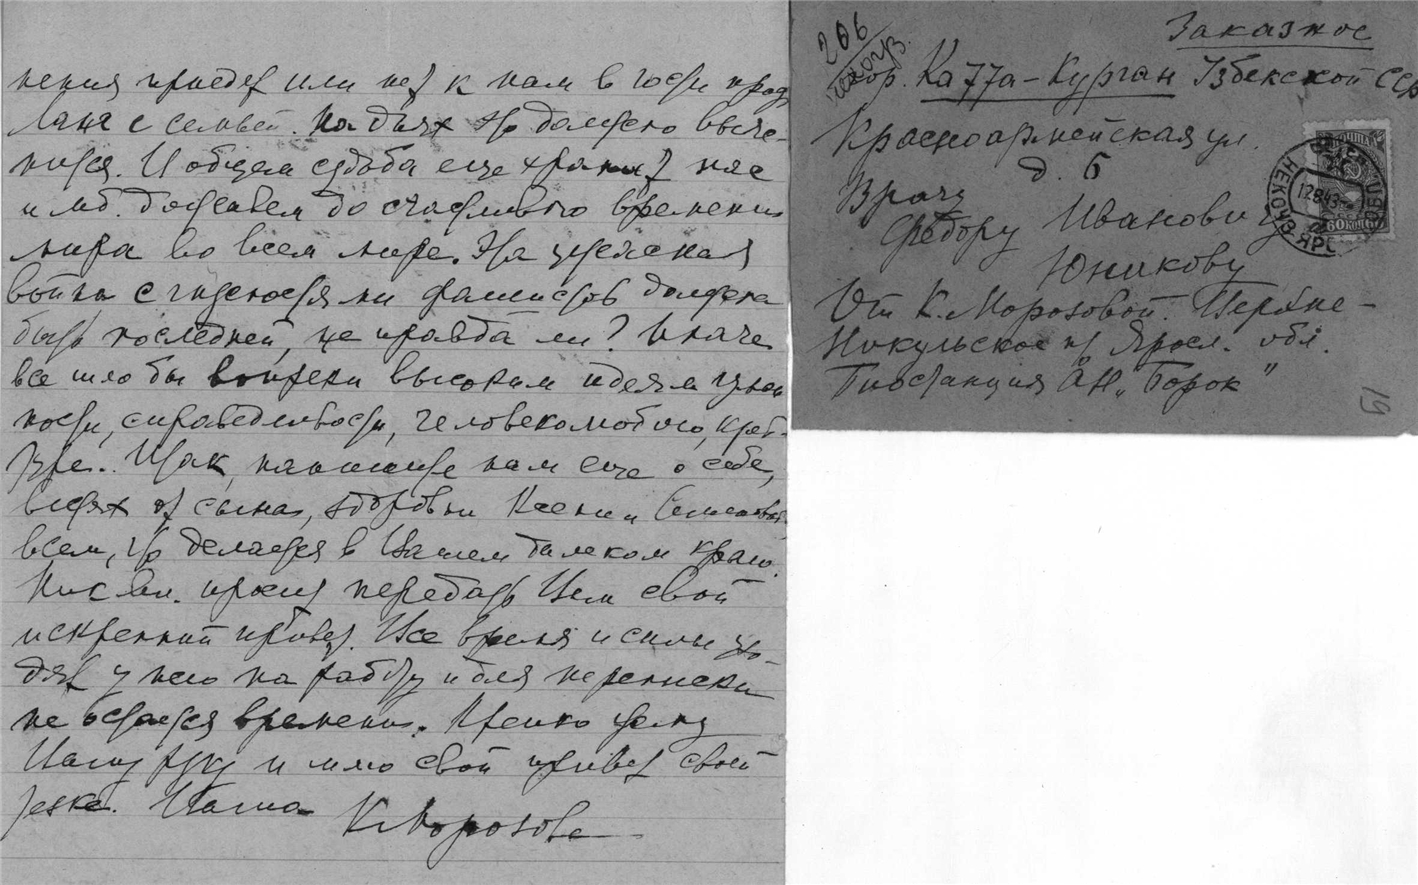 нения приедет или нет к нам в гости
с семьей. На днях это должно выяс-
ниться. В общем судьба еще хранит нас
и м.б. доживем до счастливого времени
мира во всем мире. Эта ужасная
война с гнусностями фашистов должна
быть последней, не правда ли? Иначе
все шло бы вопреки высоким идеям
ности, справедливости, человеколюбию,
Итак, напишите нам еще о себе,
вестях от сына, здоровьи Ксении
всем, что делается в Вашем далеком краю.
Ник. Ал. просил передать Вам свой
искренний привет. Все время и силы ухо-
дят у него на работу и для переписки
не остается времени. Крепко жму
Вашу руку и шлю свой привет
Ваша К. Морозова
206
Заказное
гор. Катта-Курган Узбекской ССР
Красноармейская ул.
д. 6
Врачу
Федору Ивановичу
Юникову
От К. Морозовой. Перяне-
Никульское п/ Яросл. обл.
Биостанция АН "Борок"
ПОЧТА
СССР
60 КОП 60
НЕКОУЗ ЯРОС
12843
19